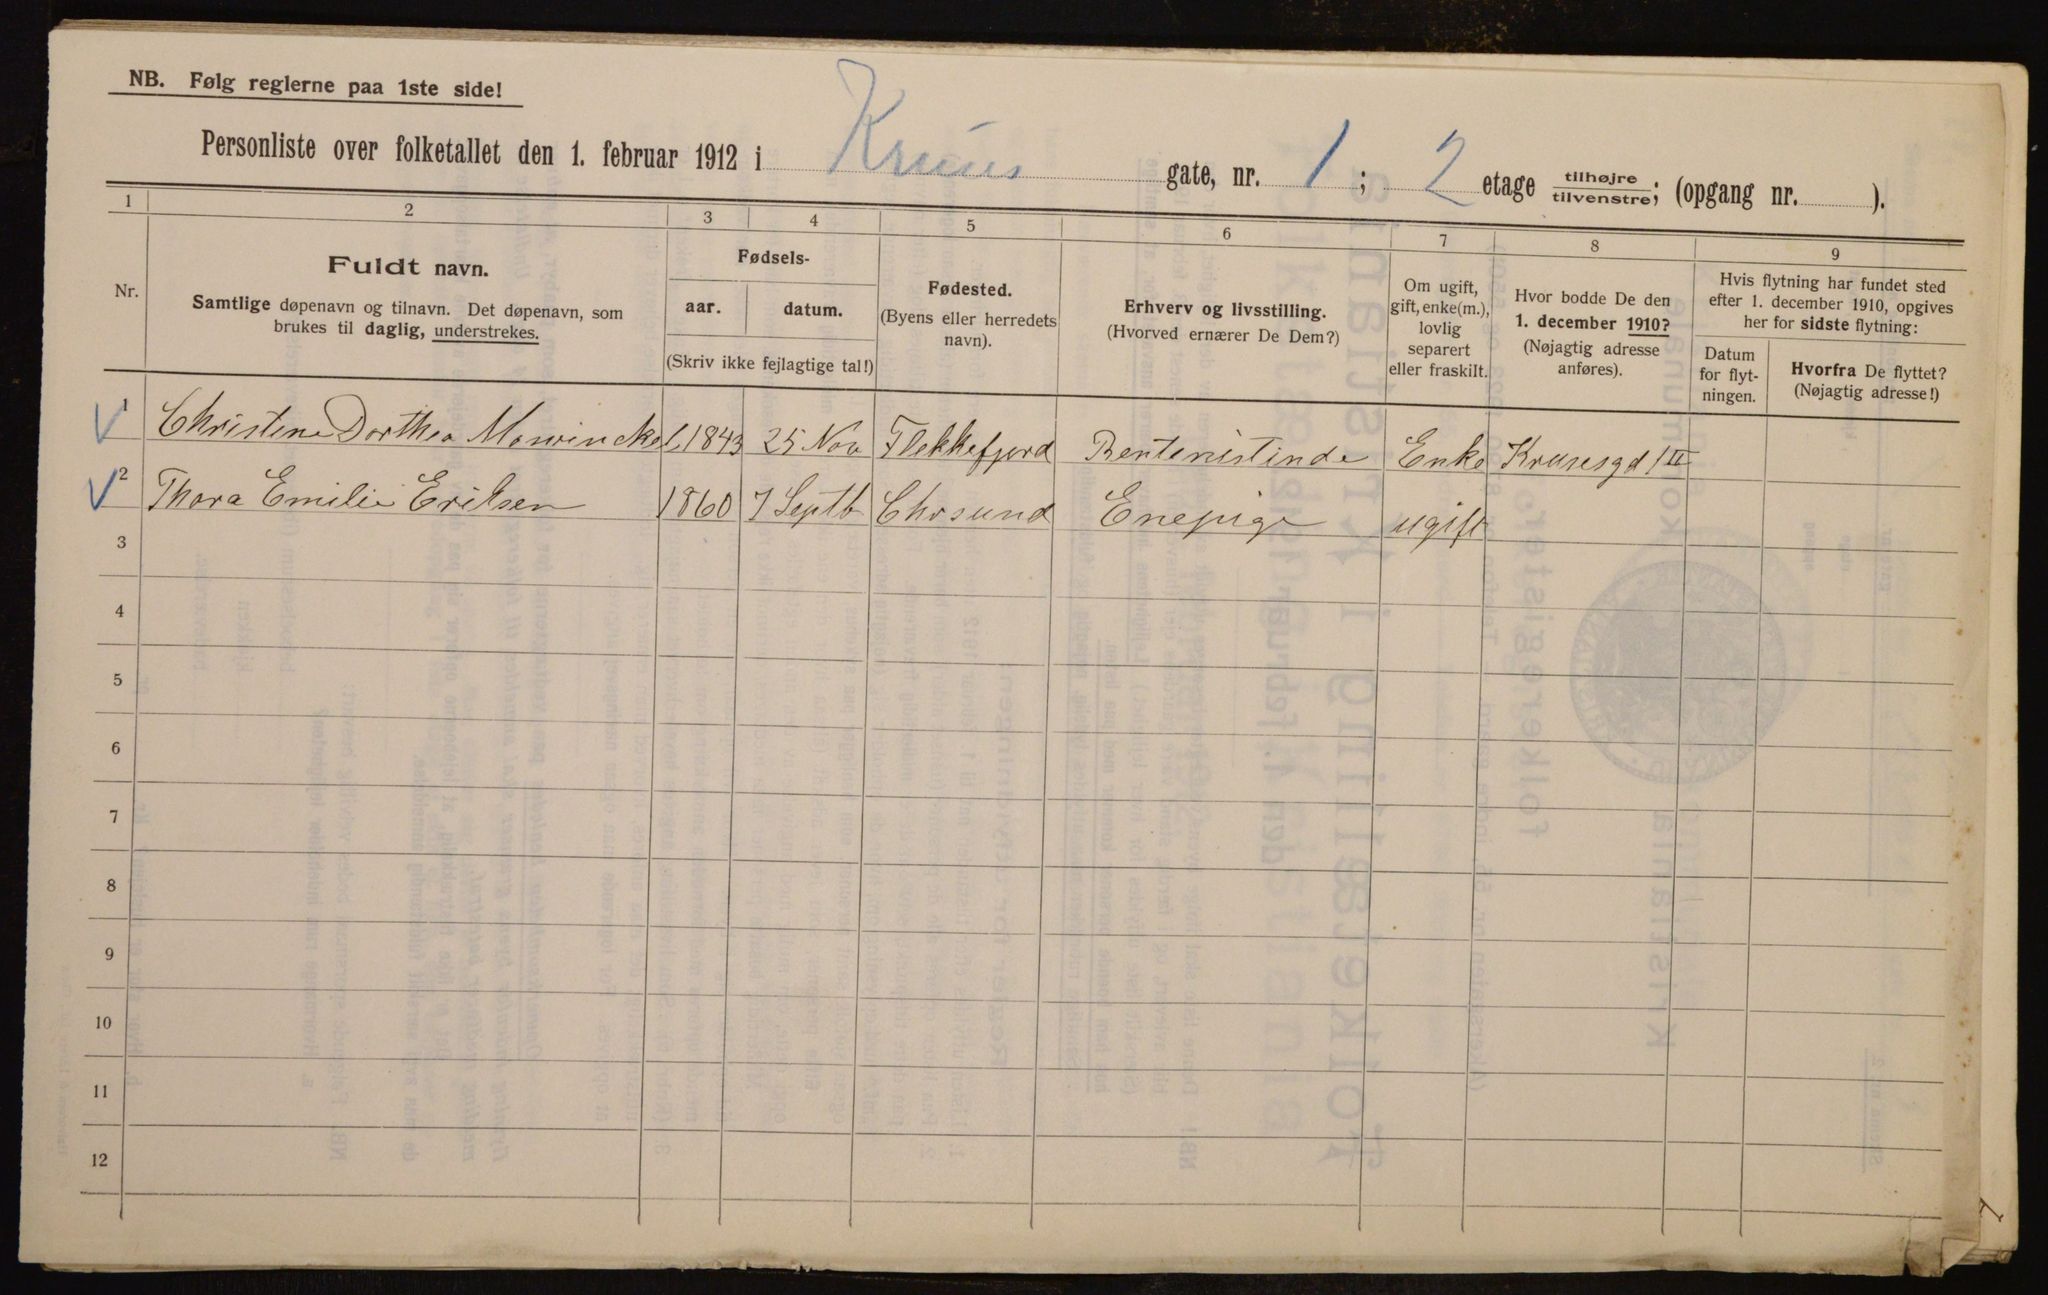 NB. Følg reglerne paa 1ste side!
Personliste over folketallet den 1. februar 1912 i Kruus gate, nr. 1; 2 etage tilhøjre/tilvenstre; (opgang nr. ).
1 2 3 4 5 6 7 8 9
Nr.
Fuldt navn.
Samtlige døpenavn og tilnavn. Det døpenavn, som
brukes til daglig, understrekes.
Fødsels-
aar. datum.
(Skriv ikke fejlagtige tal!)
Fødested.
(Byens eller herredets
navn).
Erhverv og livsstilling.
(Hvorved ernærer De Dem?)
Om ugift,
gift, enke(m.),
lovlig
separert
eller fraskilt.
Hvor bodde De den
1. december 1910?
(Nøjagtig adresse
anføres).
Hvis flytning har fundet sted
efter 1. december 1910, opgives
her for sidste flytning:
Datum
for flyt-
ningen.
Hvorfra De flyttet?
(Nøjagtig adresse!)
1 Christine Dorthea Mowinckel 1843 25 Nov Flekkefjord Rentenistinde Enke Krusesgd 1 II
2 Thora Emilie Eriksen 1860 7 Septb Chrsund Enepige ugift
3
4
5
6
7
8
9
10
11
12